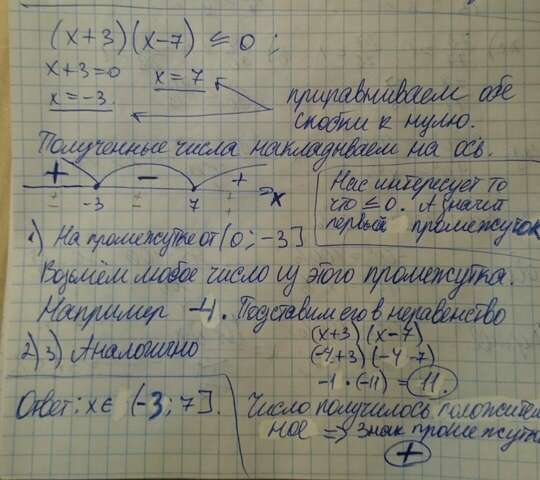 (x+3)(x-7) ≤ 0;
x+3=0 x=7
x=-3
приравниваем обе
скобки к нулю.
Полученные числа накладываем на ось.
+ - +
-3 7 x
Нас интересует то
что ≤0. А значит
первый промежуток
1) На промежутке от (0; -3]
Возьмём любое число из этого промежутка.
Например -4. Подставим его в неравенство
(x+3)(x-7)
2) 3) Аналогично
(-4+3)(-4-7)
-1·(-11) = 11.
Ответ: x ∈ (-3; 7].
Число получилось положитель
ное => знак промежутка
+